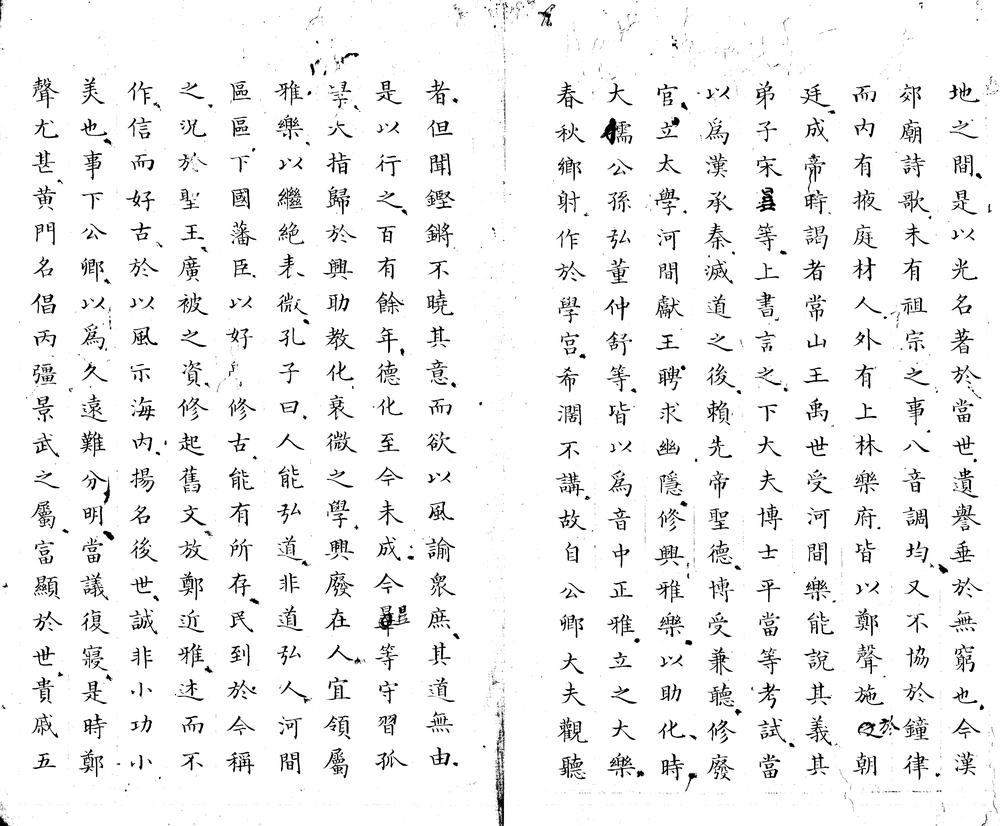 地之間是以光名著於當世遺譽垂於無窮也今漢
郊廟詩歌未有祖宗之事八音調均又不協於鐘律
而內有掖庭材人外有上林樂府皆以鄭聲施於朝
廷成帝時謁者常山王禹世受河間樂能說其義其
弟子宋曅等上書言之下大夫博士平當等考試當
以爲漢承秦滅道之後賴先帝聖德博受兼聽修廢
官立太學河間獻王聘求幽隱修興雅樂以助化時
大儒公孫弘董仲舒等皆以爲音中正雅立之大樂
春秋鄉射作於學宮希濶不講故自公卿大夫觀聽
者但聞鏗鏘不曉其意而欲以風諭衆庶其道無由
是以行之百有餘年德化至今未成今曅等守習孤
學大指歸於興助教化衰微之學興廢在人宜領屬
雅樂以繼絕表微孔子曰人能弘道非道弘人河間
區區下國藩臣以好修古能有所存民到於今稱
之況於聖王廣被之資修起舊文放鄭近雅述而不
作信而好古於以風示海內揚名後世誠非小功小
美也事下公卿以爲久遠難分明當議復寢是時鄭
聲尤甚黃門名倡丙彊景武之屬富顯於世貴戚五